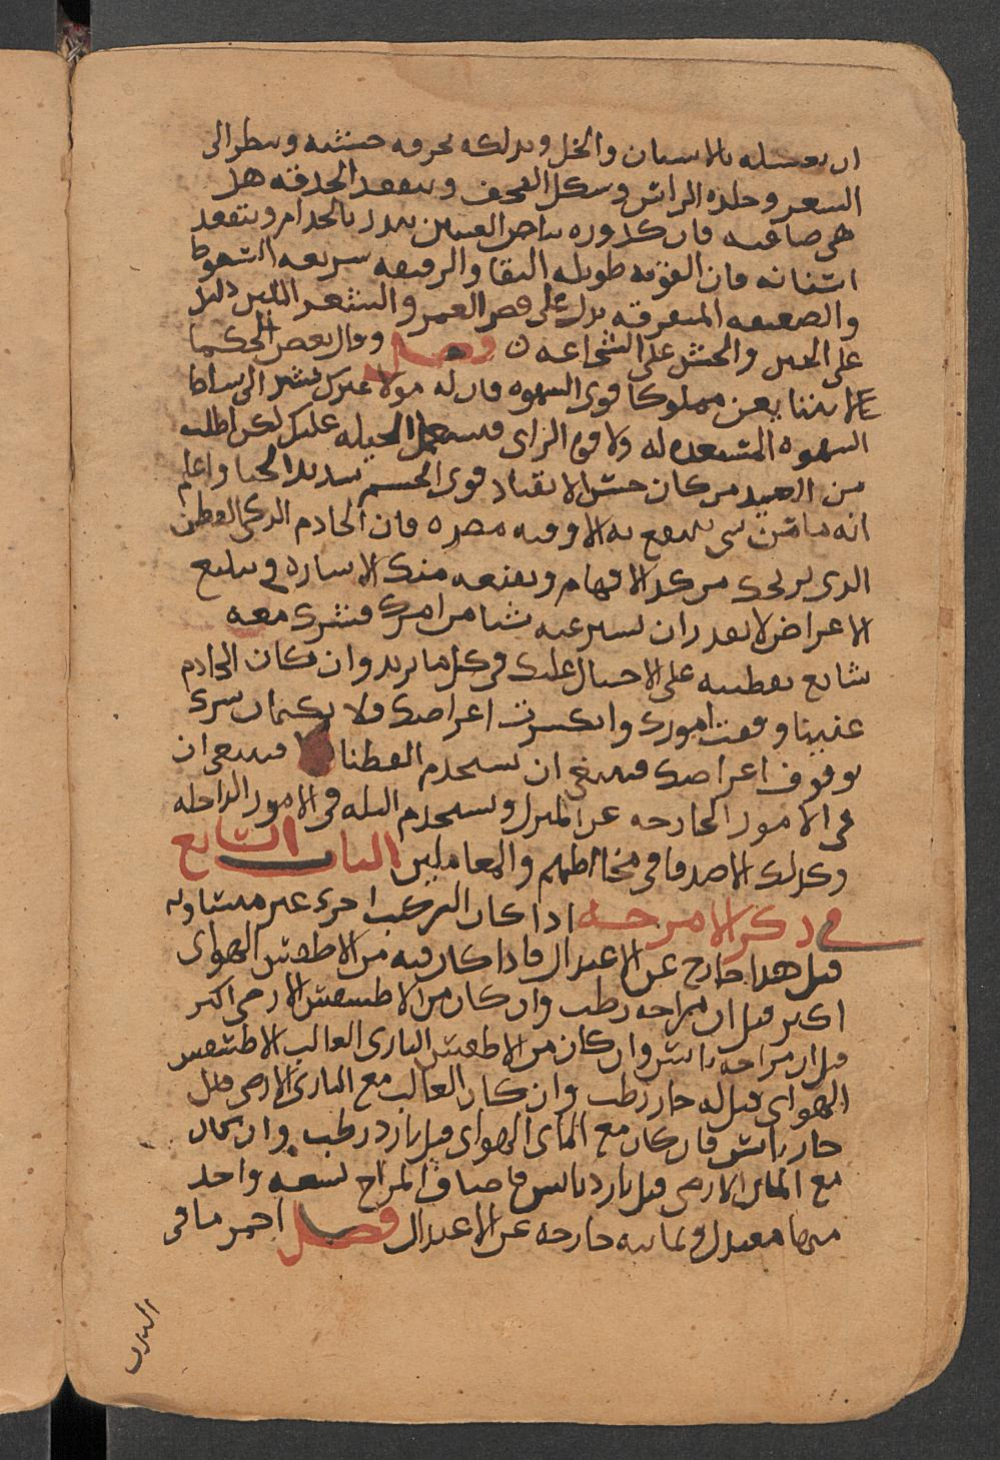 ان يغسله بالاشنان والخل ويدلكه بخرقه خشنه وينظر الى
الشعر وجلدة الراس وشكل القحف ويتفقد الحدقه هل
هى صافيه فان كدورة بياض العينين ينذر بالجذام ويتفقد
اسنانه فان القويه طويله البقا والرقيقه سريعه السقوط
والضعيفه المتفرقه يدل على قصر العمر والشعر اللين دليل
على الجبن والخشن على الشجاعه فصل وقال بعض الحكما
لا يقتنا بعض مملوكا قوى الشهوه فان له مولا غيرك
الشهوه المستعبده له ولا قوى الراى فيستعمل الحيله عليك لكن اطلب
من العبيد من كان حسن الانقياد قوى الجسم شديد الحيا واعلم
انه ما من شى ينتفع به الا وفيه مضره فان الخادم الذكى الفطن
الذى يريحك من كد الافهام ويقنعه منك الاشاره فى تبليغ
الاغراض لا تقدر ان تستر عنه شيا من امرك فتشرك معه
شايع بفطنته على الاحتيال عليك فى كل ما يريد وان كان الخادم
غبيا وقفت امورك وانكسرت اغراضك ولا بكتمان سرك
بوقوف اغراضك فينبغى ان تستخدم الفطنا فينبغى ان
فى الامور الخارجه عن المنزل وتستخدم البله فى الامور الداخله
وكذلك الاصدقا فى مخالطهم والمعاملين الباب السابع
فى ذكر الامزجه اذا كان التركيب اجزى غير متساويه
قيل هذا خارج عن الاعتدال فاذا كان فيه من الاسطقس الهواى
اكثر قيل ان مزاجه رطب وان كان من الاسطقس الارضى اكثر
قيل ان مزاجه يابس وان كان من الاسطقس النارى الغالب الاسطقس
الهواى قيل له حار رطب وان كان الغالب مع النارى الارضى قيل
حار يابس فان كان مع الماى الهواى قيل بارد رطب وان كان
مع الماى الارضى قيل بارد يابس فاصناف المزاج تسعه واحد
منها معتدل وثمانيه خارجه عن الاعتدال فصل احمر ما فى
البدن